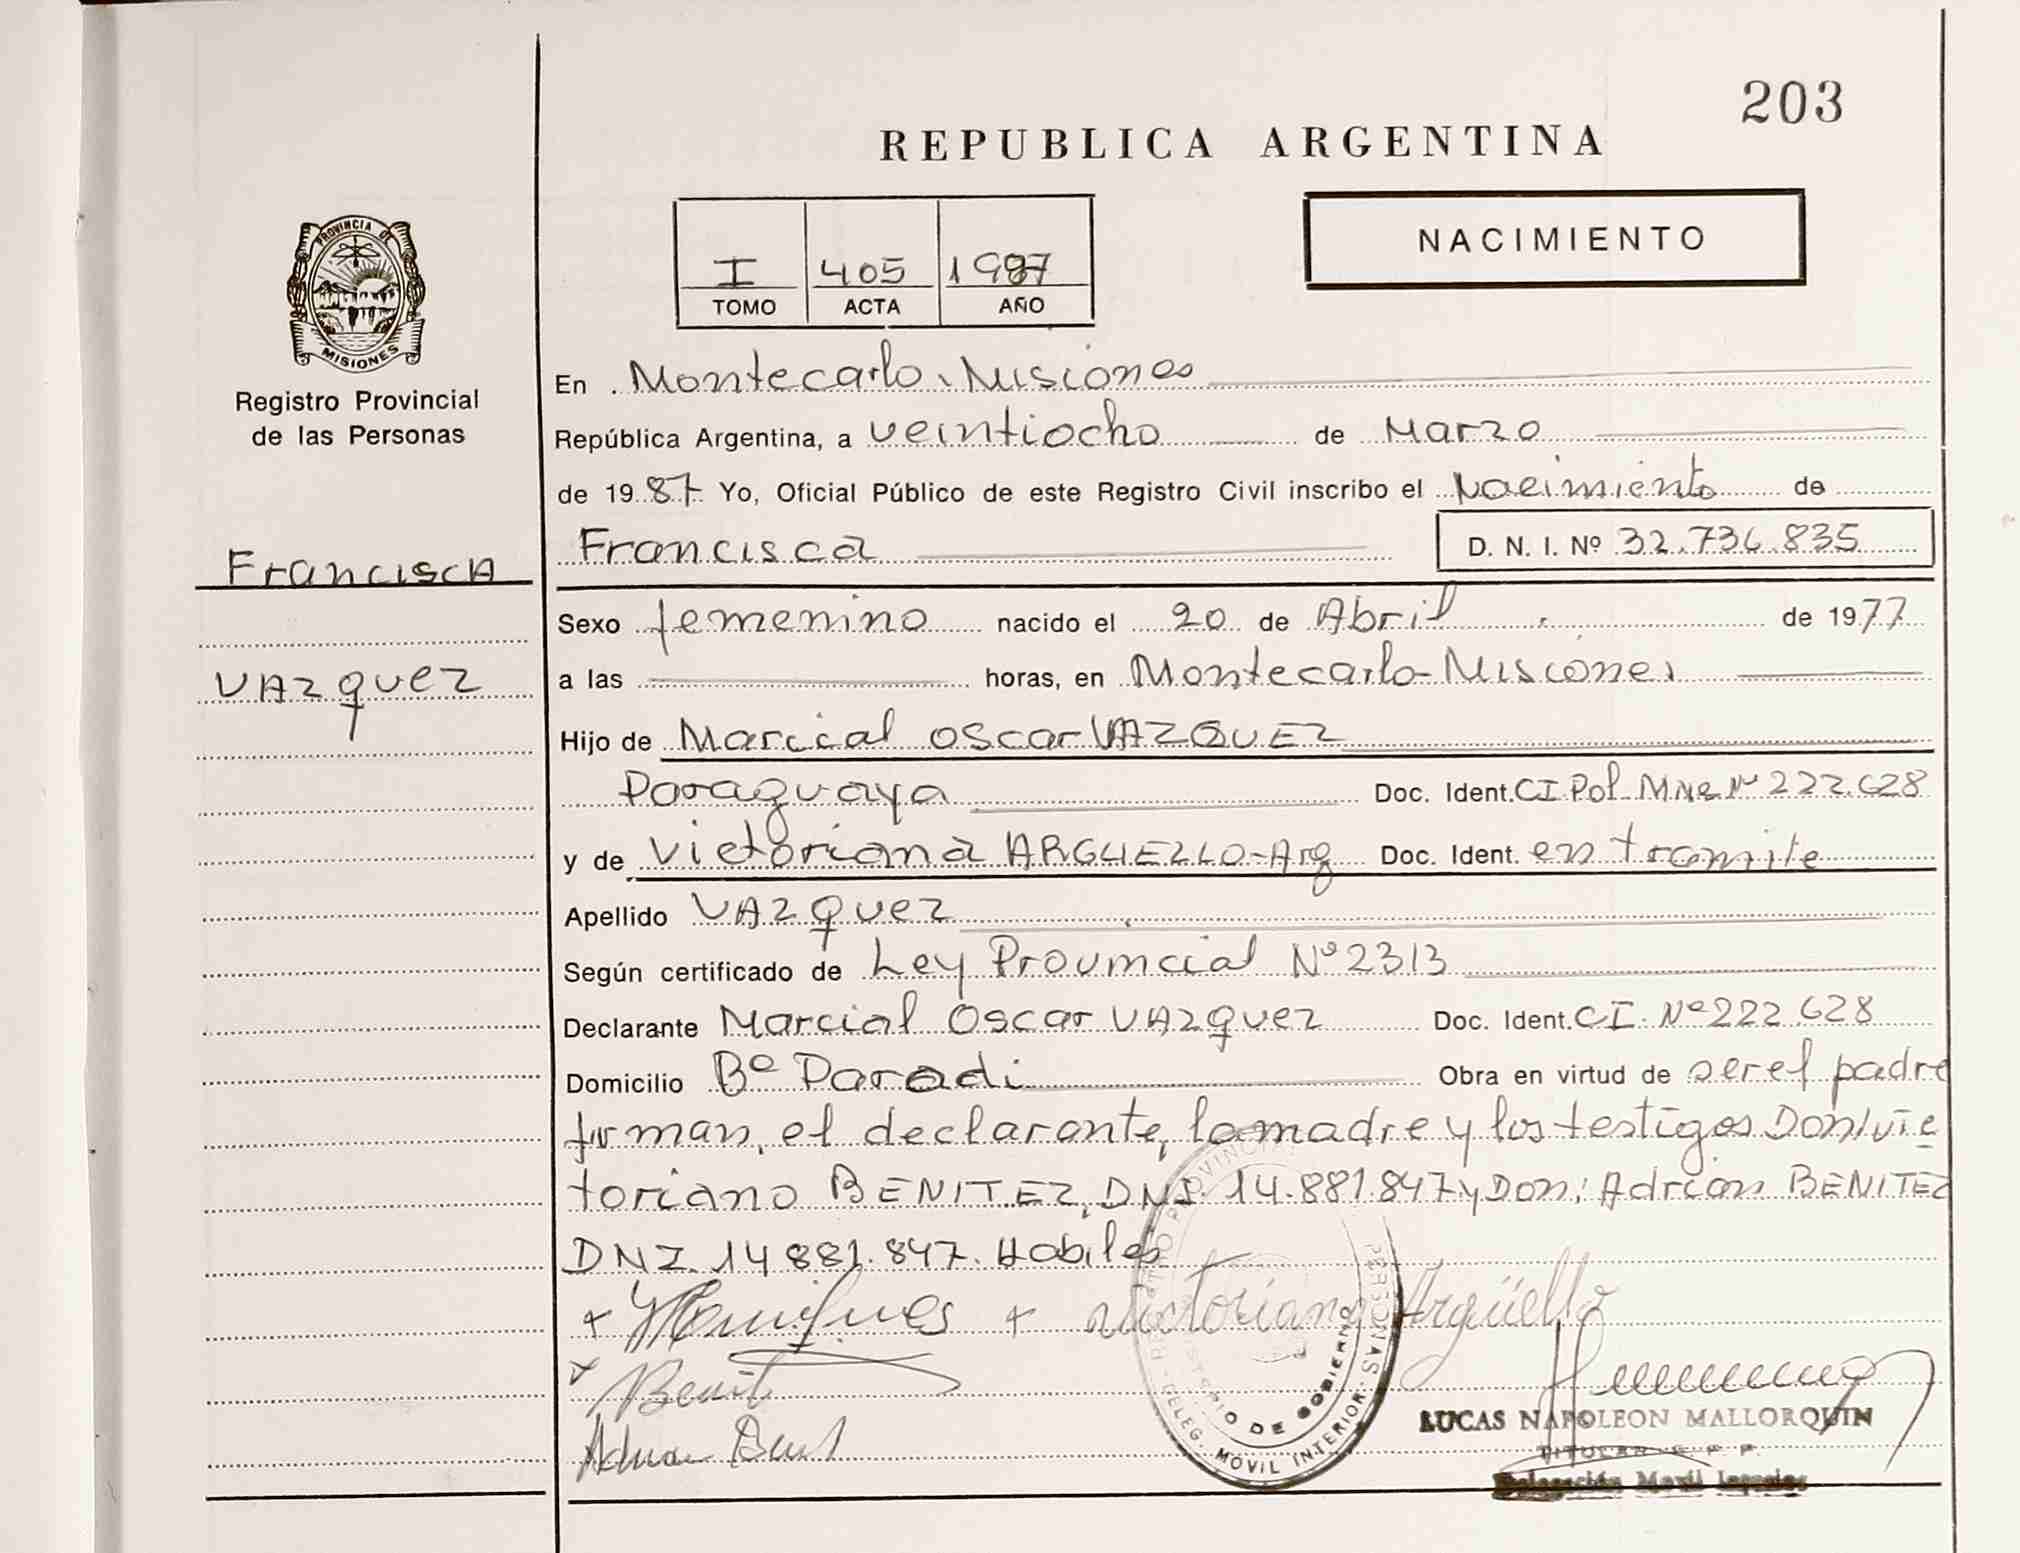 203
REPUBLICA ARGENTINA
NACIMIENTO
I 405 1987
TOMO ACTA AÑO
PROVINCIA DE
MISIONES
Registro Provincial
de las Personas
Francisca
Vazquez
En Montecarlo, Misiones
República Argentina, a veintiocho de Marzo
de 1987 Yo, Oficial Público de este Registro Civil inscribo el Nacimiento de
Francisca D. N. I. Nº 32.736.835
Sexo femenino nacido el 20 de Abril de 1977
a las horas, en Montecarlo-Misiones
Hijo de Marcial Oscar VAZQUEZ
Paraguaya Doc. Ident. CI. Pol. Mnes Nº 222.628
y de Victoriana ARGUELLO-Arg Doc. Ident. en tramite
Apellido VAZquez
Según certificado de Ley Provincial Nº 2313
Declarante Marcial Oscar VAZquez Doc. Ident. CI. Nº 222.628
Domicilio Bº Parodi Obra en virtud de ser el padre
firman, el declarante, la madre y los testigos Don: Vic
toriano BENITEZ, DNI. 14.881.847 y Don: Adrian BENITEZ
DNI. 14.881.847. Habiles
Victoriana Argüello
Benit
LUCAS NAPOLEON MALLORQUIN
DELEG. MOVIL INTERIOR
DE GOBIERNO
Delegación Movil